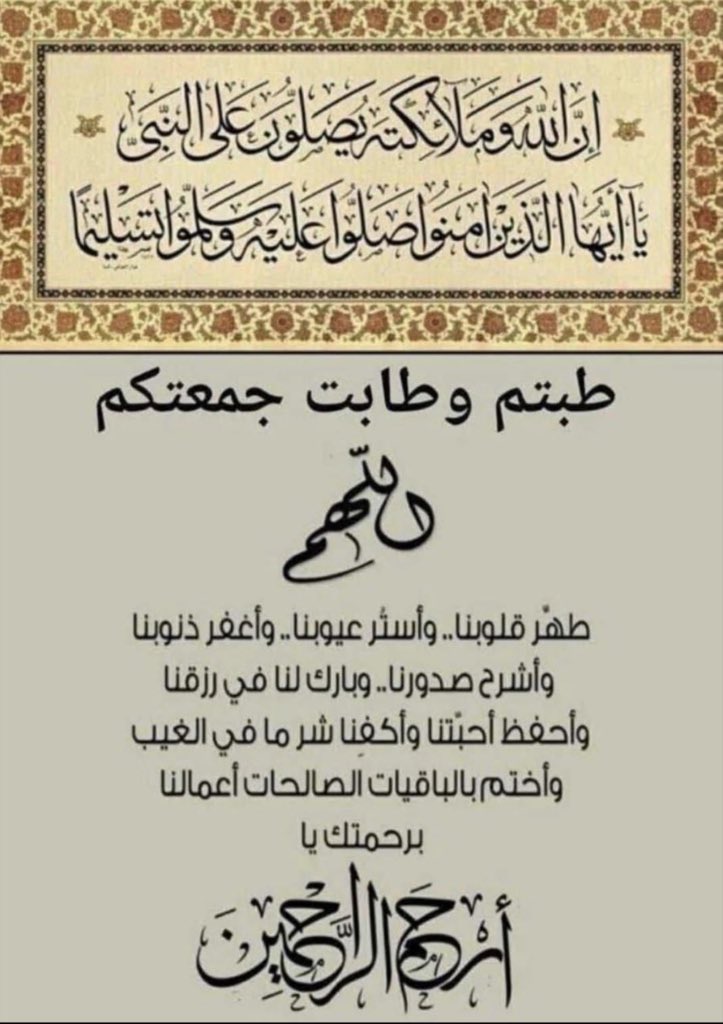 إِنَّ اللهَ وَمَلَآئِكَتَهُ يُصَلُّونَ عَلَى النَّبِيِّ
يَآ أَيُّهَا الَّذِينَ آمَنُوا صَلُّوا عَلَيْهِ وَسَلِّمُوا تَسْلِيمًا
طبتم وطابت جمعتكم
اللّهم
طهّر قلوبنا.. وأستُر عيوبنا.. وأغفر ذنوبنا
وأشرح صدورنا.. وبارك لنا في رزقنا
وأحفظ أحبّتنا وأكفِنا شر ما في الغيب
وأختم بالباقيات الصالحات أعمالنا
برحمتك يا
أرحم الرَّاحمِين